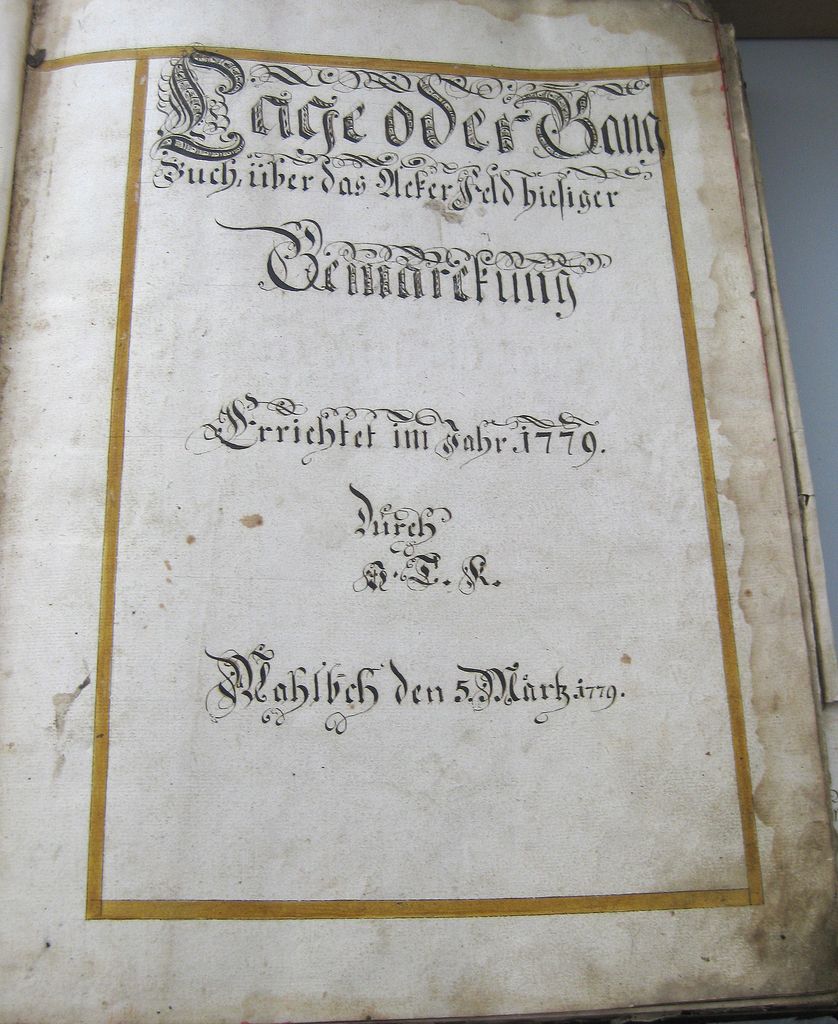 Lage oder Bann
Buch, über das Acker Feld hiesiger
Gemarckung
Errichtet im Jahr 1779.
Durch
T. K.
Mahlbch den 5. Märtz 1779.